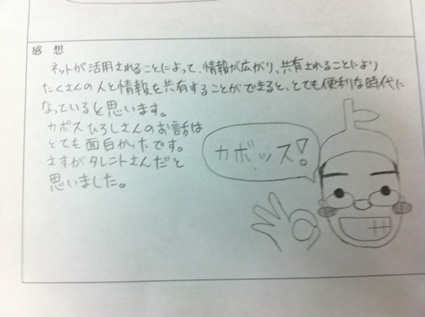 感想
ネットが活用されることによって、情報が広がり、共有されることにより
たくさんの人と情報を共有することができると、とても便利な時代に
なっていると思います。
カボスひろしさんのお話は
とても面白かったです。
さすがタレントさんだと
思いました。
カボッス!